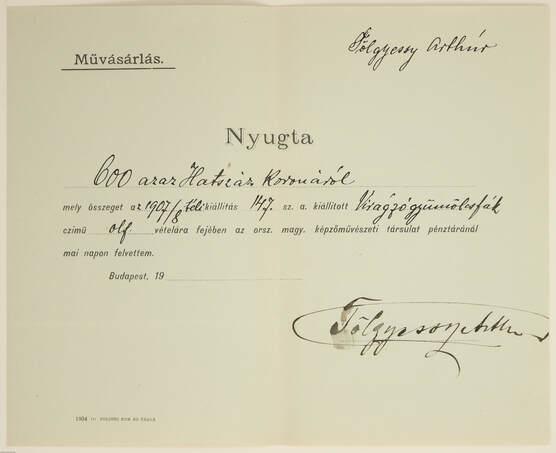 Művásárlás.
Tölgyessy Arthúr
Nyugta
600 azaz Hatszáz Koronáról
mely összeget az 1907/8 téli kiállítás 147. sz. a. kiállított Virágzó gyümölcsfák
czímű olf. vételára fejében az orsz. magy. képzőművészeti társulat pénztáránál
mai napon felvettem.
Budapest, 19
Tölgyessy Arthur
1904